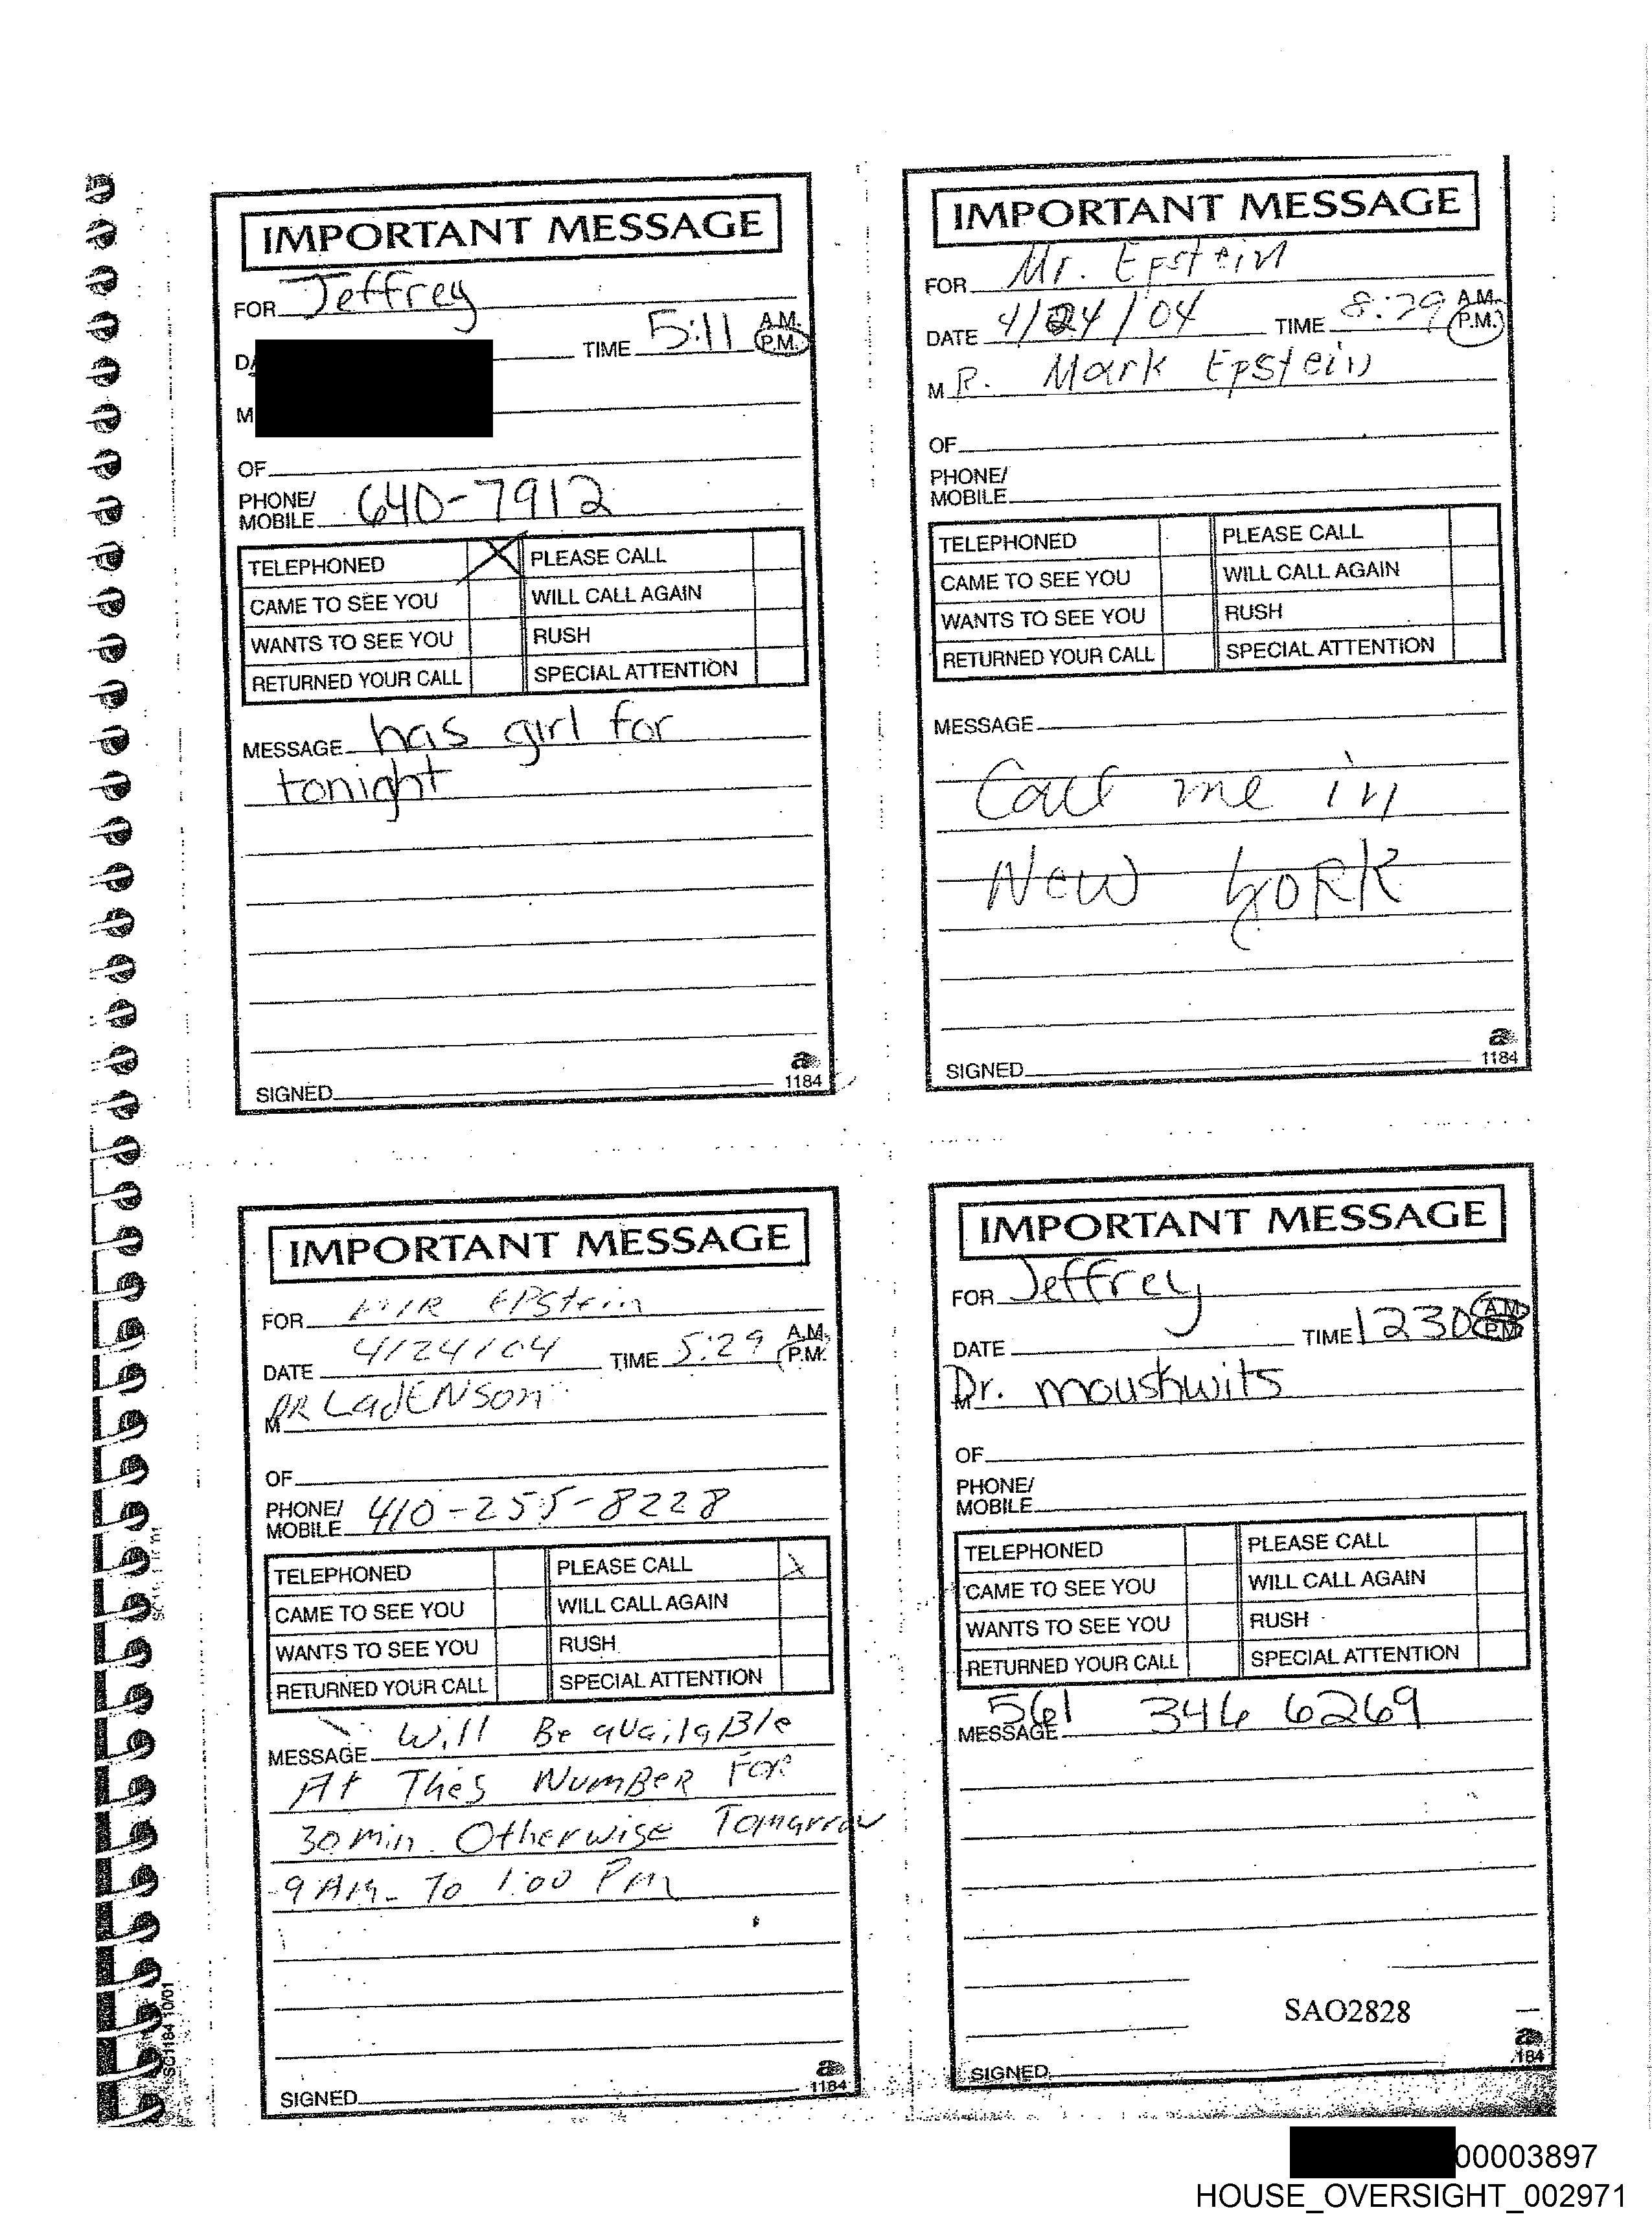 IMPORTANT MESSAGE
FOR Jeffrey
TIME 5:11 A.M. P.M.
M
OF
PHONE/ MOBILE 640-7912
TELEPHONED X PLEASE CALL
CAME TO SEE YOU WILL CALL AGAIN
WANTS TO SEE YOU RUSH
RETURNED YOUR CALL SPECIAL ATTENTION
MESSAGE has girl for
tonight
SIGNED
1184
IMPORTANT MESSAGE
FOR Mr. Epstein
DATE 4/24/04 TIME 8:29 A.M. P.M.
M R. Mark Epstein
OF
PHONE/ MOBILE
TELEPHONED PLEASE CALL
CAME TO SEE YOU WILL CALL AGAIN
WANTS TO SEE YOU RUSH
RETURNED YOUR CALL SPECIAL ATTENTION
MESSAGE
Call me in
New York
SIGNED
1184
IMPORTANT MESSAGE
FOR MR EPStein
DATE 4/24/04 TIME 5:29 A.M. P.M.
M DR LadENSon
OF
PHONE/ MOBILE 410-255-8228
TELEPHONED PLEASE CALL X
CAME TO SEE YOU WILL CALL AGAIN
WANTS TO SEE YOU RUSH
RETURNED YOUR CALL SPECIAL ATTENTION
MESSAGE Will Be availaBle
At Thes NumBER For
30 min. Otherwise Tomarrow
9 AM- To 1:00 Pm
SIGNED
1184
IMPORTANT MESSAGE
FOR Jeffrey
DATE TIME 1230 A.M. P.M.
M Dr. moushwits
OF
PHONE/ MOBILE
TELEPHONED PLEASE CALL
CAME TO SEE YOU WILL CALL AGAIN
WANTS TO SEE YOU RUSH
RETURNED YOUR CALL SPECIAL ATTENTION
MESSAGE 561 346 6269
SAO2828
SIGNED
184
SC1184 10/01
00003897
HOUSE_OVERSIGHT_002971